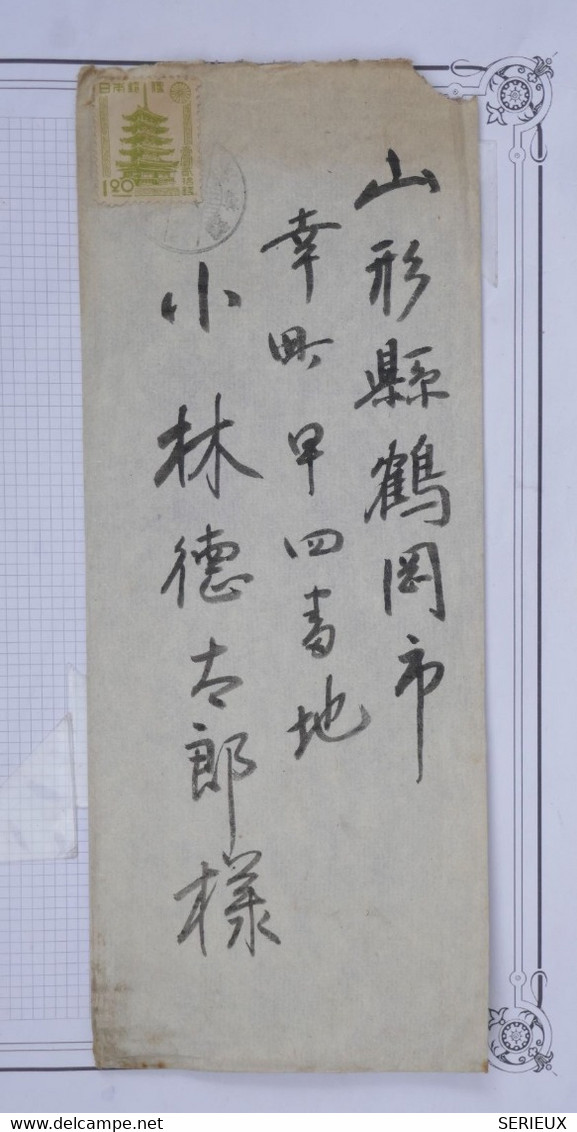 山形縣鶴岡市
幸町甲四番地
小林德太郎様
日本郵便
1.20
SERIEUX